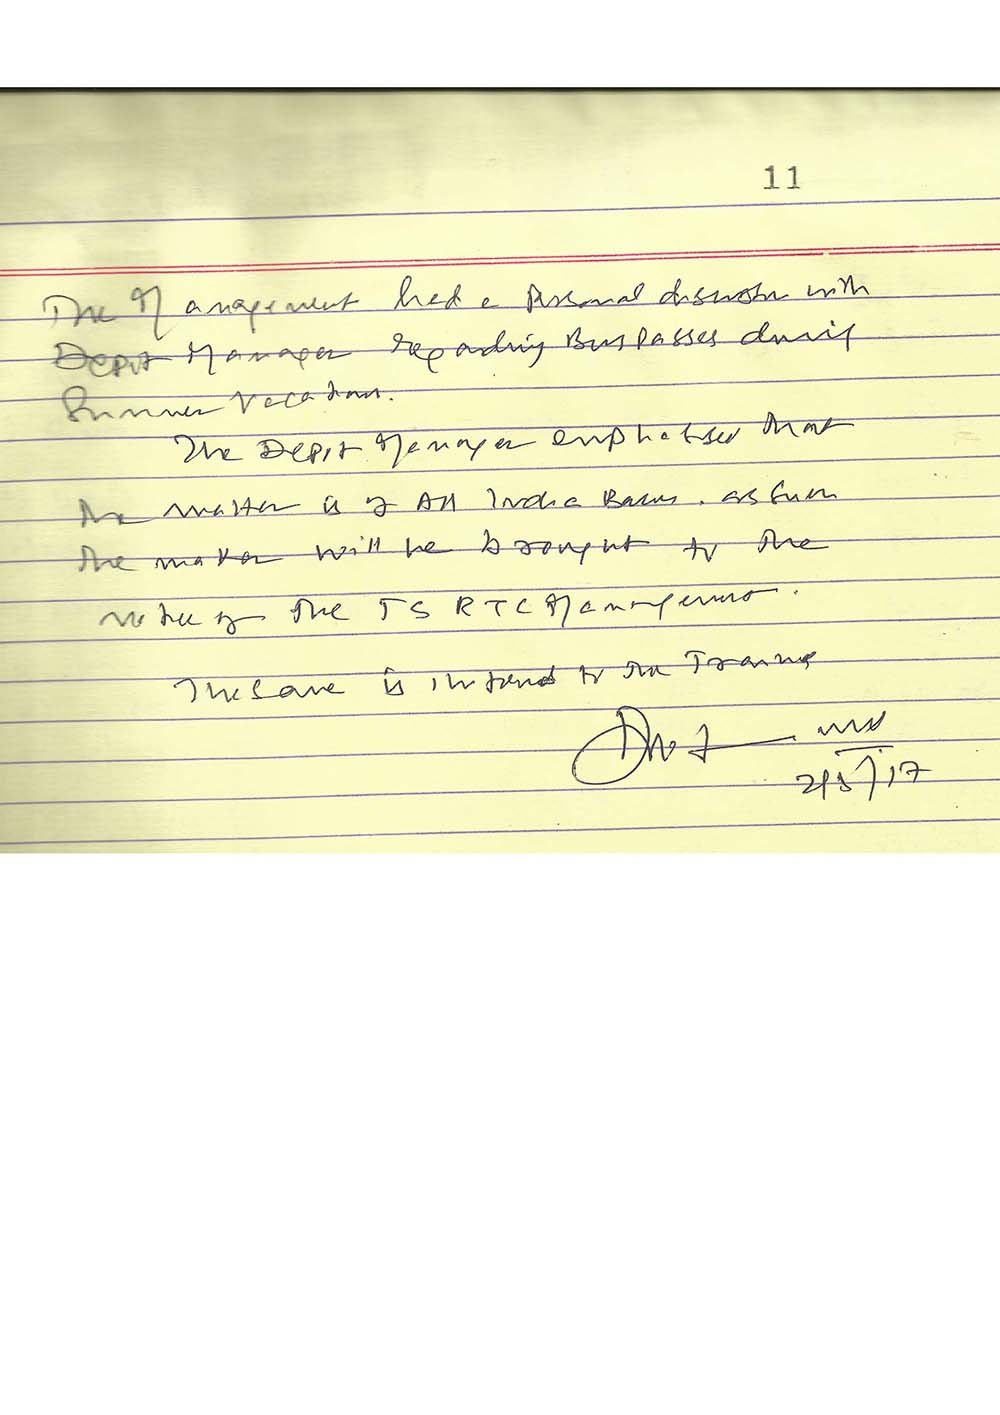 11
The Management had a personal discussion with
Depot Manager regarding Bus Passes during
Summer Vacation.
The Depot Manager emphatised that
the matter is of All India Basis. as such
the matter will be brought to the
notice of the TSRTC Management.
The same is informed to the Trainees
2/5/17